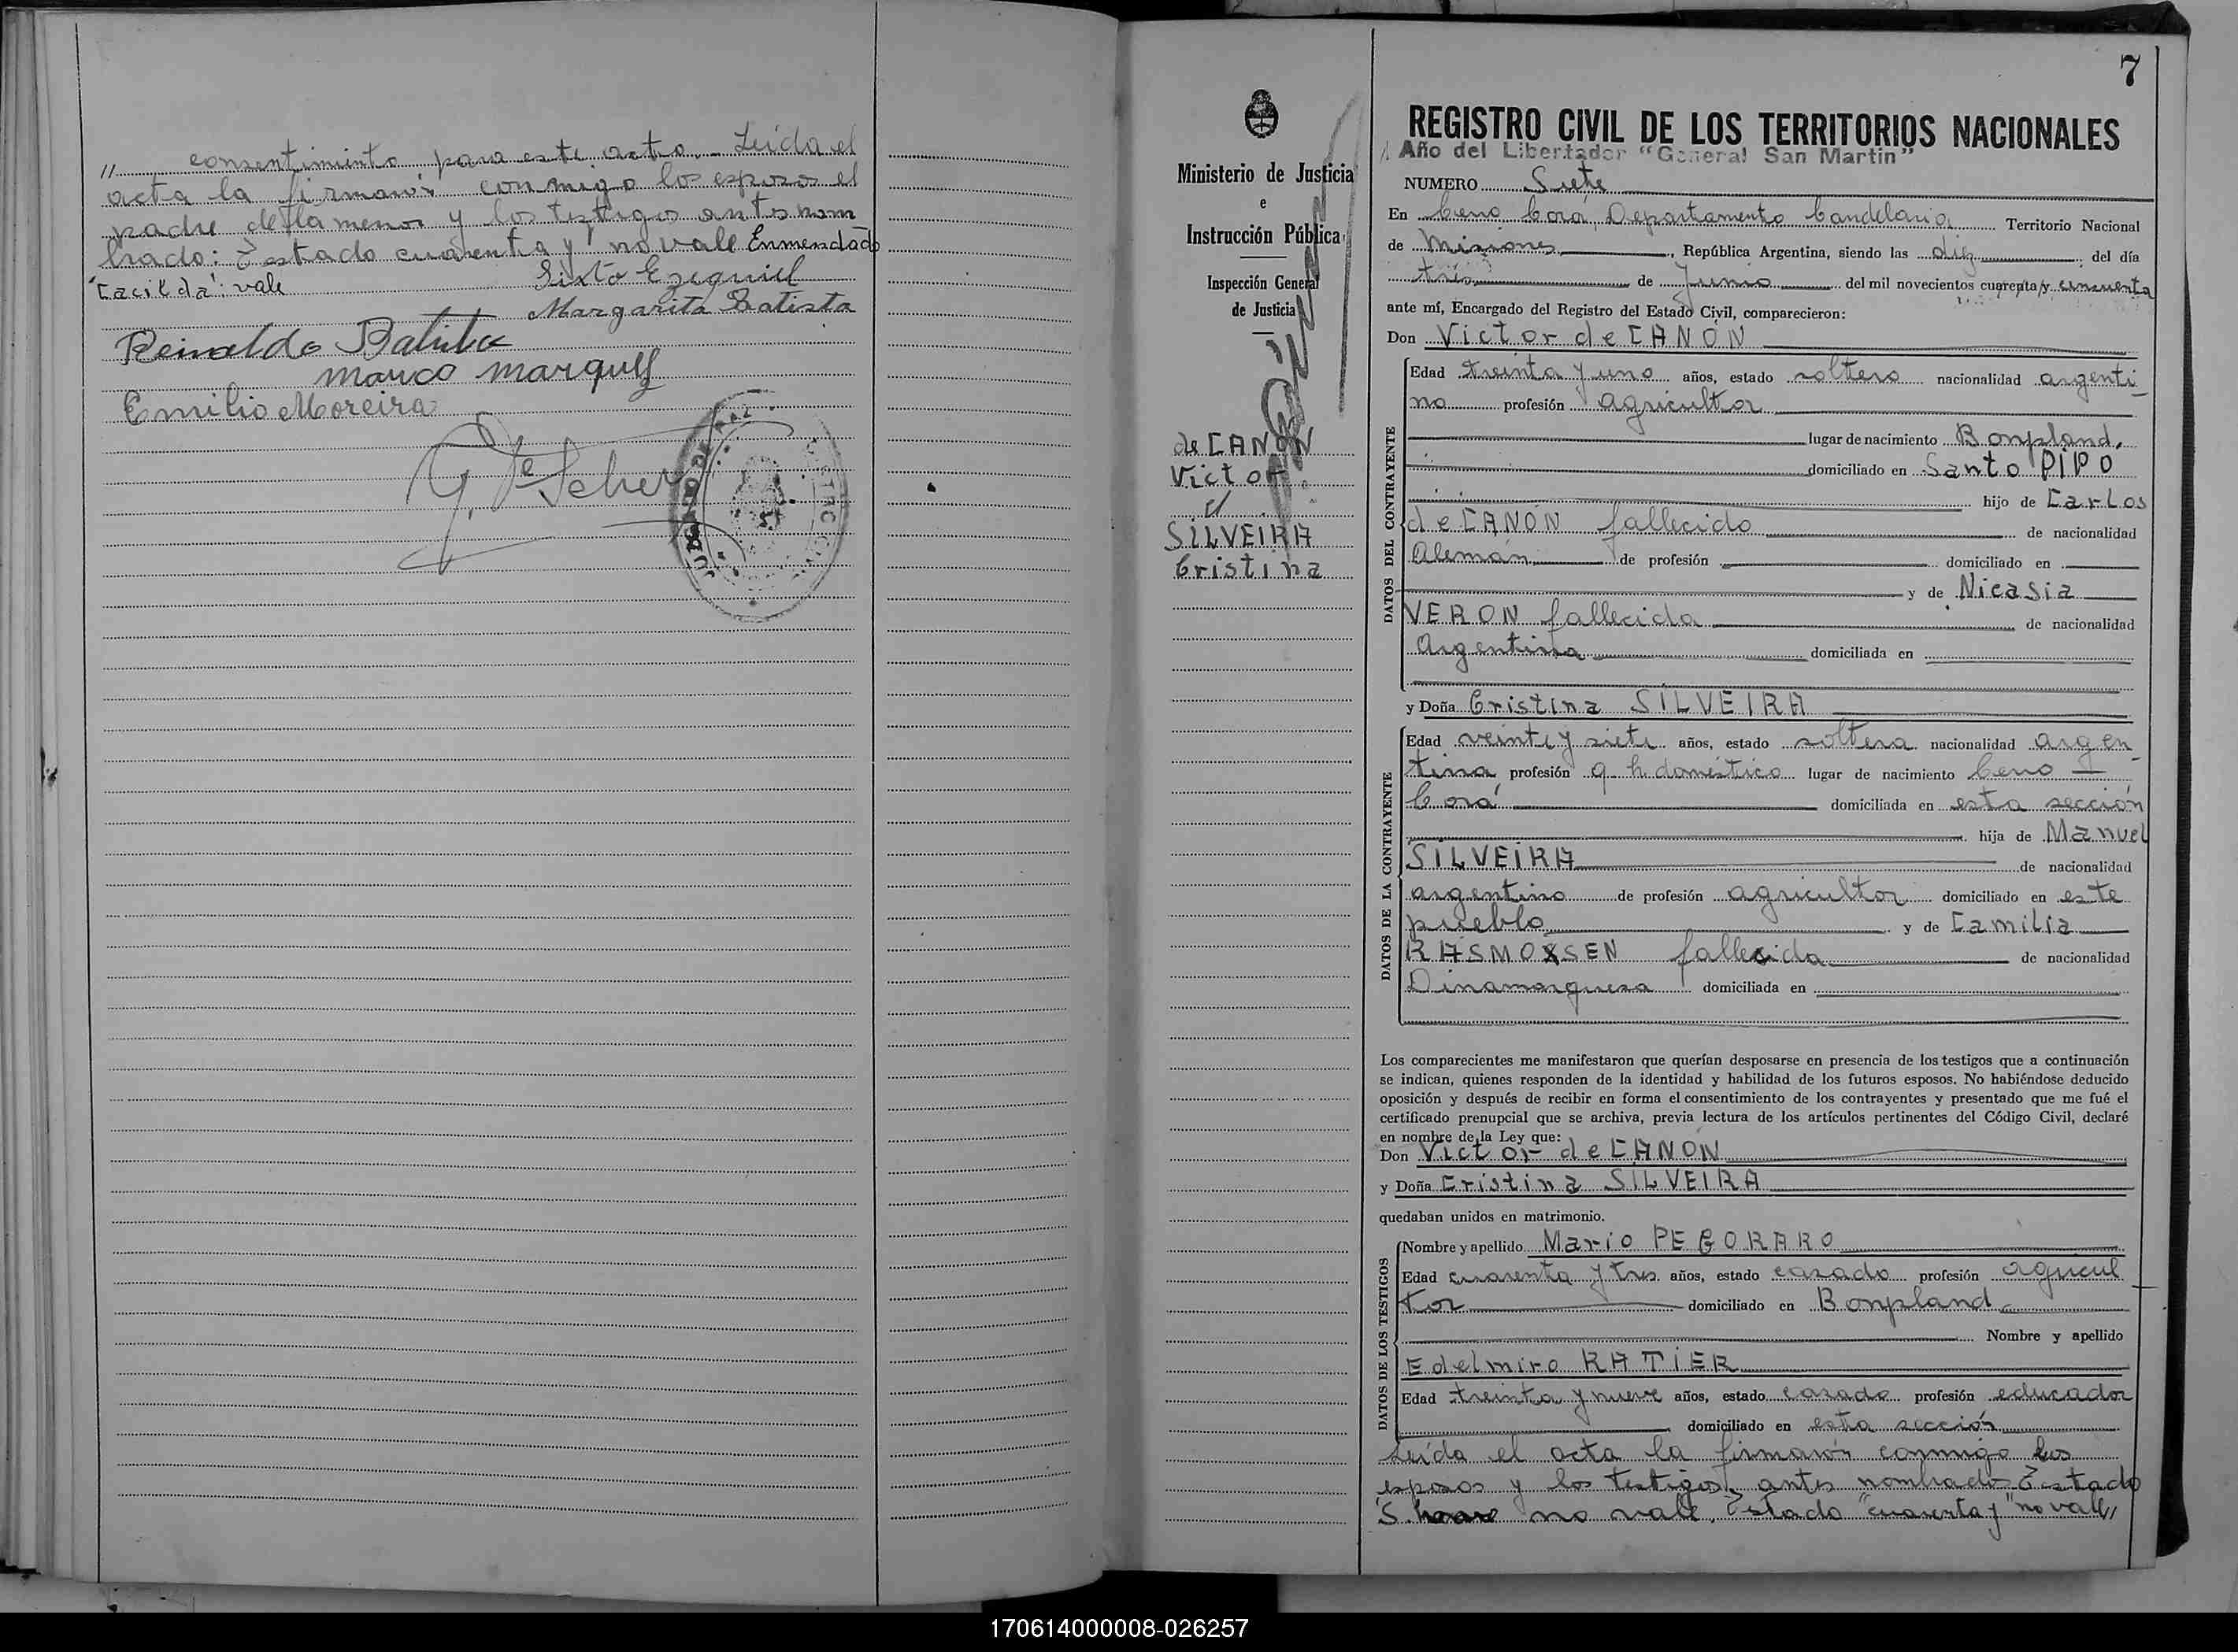 " consentimiento para este acto. Leída el
acta la firmarón conmigo los esposos el
padre de la menor y los testigos antes nom
brado: Testado cuarenta y no vale Enmendado
"Cacilda": vale
Sixto Ezequiel
Margarita Batista
Reinaldo Batista
Marco Marques
Emilio Moreira
7
Ministerio de Justicia
e
Instrucción Pública
Inspección General
de Justicia
de CANÓN
Victor
SILVEIRA
Cristina
REGISTRO CIVIL DE LOS TERRITORIOS NACIONALES
Año del Libertador "General San Martin"
NUMERO Siete
En Cerro Corá Departamento Candelaria Territorio Nacional
de Misiones, República Argentina, siendo las diez del día
tres de Junio del mil novecientos cuarenta y cincuenta
ante mí, Encargado del Registro del Estado Civil, comparecieron:
Don Victor de CANÓN
DATOS DEL CONTRAYENTE
Edad treinta y uno años, estado soltero nacionalidad argenti-
no profesión agricultor
lugar de nacimiento Bonpland,
domiciliado en Santo PIPO
hijo de Carlos
de CANÓN fallecido de nacionalidad
Alemán de profesión domiciliado en
y de Nicasia
VERON fallecida de nacionalidad
Argentina domiciliada en
y Doña Cristina SILVEIRA
DATOS DE LA CONTRAYENTE
Edad veinte y siete años, estado soltera nacionalidad argen-
tina profesión q. h. doméstico lugar de nacimiento Cerro
Corá domiciliada en esta sección
hija de Manuel
SILVEIRA de nacionalidad
argentino de profesión agricultor domiciliado en este
pueblo y de Camilia
RASMOSSEN fallecida de nacionalidad
Dinamarquesa domiciliada en
Los comparecientes me manifestaron que querían desposarse en presencia de los testigos que a continuación
se indican, quienes responden de la identidad y habilidad de los futuros esposos. No habiéndose deducido
oposición y después de recibir en forma el consentimiento de los contrayentes y presentado que me fué el
certificado prenupcial que se archiva, previa lectura de los artículos pertinentes del Código Civil, declaré
en nombre de la Ley que:
Don Victor de CANON
y Doña Cristina SILVEIRA
quedaban unidos en matrimonio.
DATOS DE LOS TESTIGOS
Nombre y apellido Mario PEGORARO
Edad cuarenta y tres años, estado casado profesión agricul
tor domiciliado en Bonpland
Nombre y apellido
Edelmiro RATIER
Edad treinta y nueve años, estado casado profesión educador
domiciliado en esta sección
Leída el acta la firmarón conmigo los
esposos y los testigos antes nombrado Testado
S. no vale. Testado "cuarenta y" no vale//
170614000008-026257